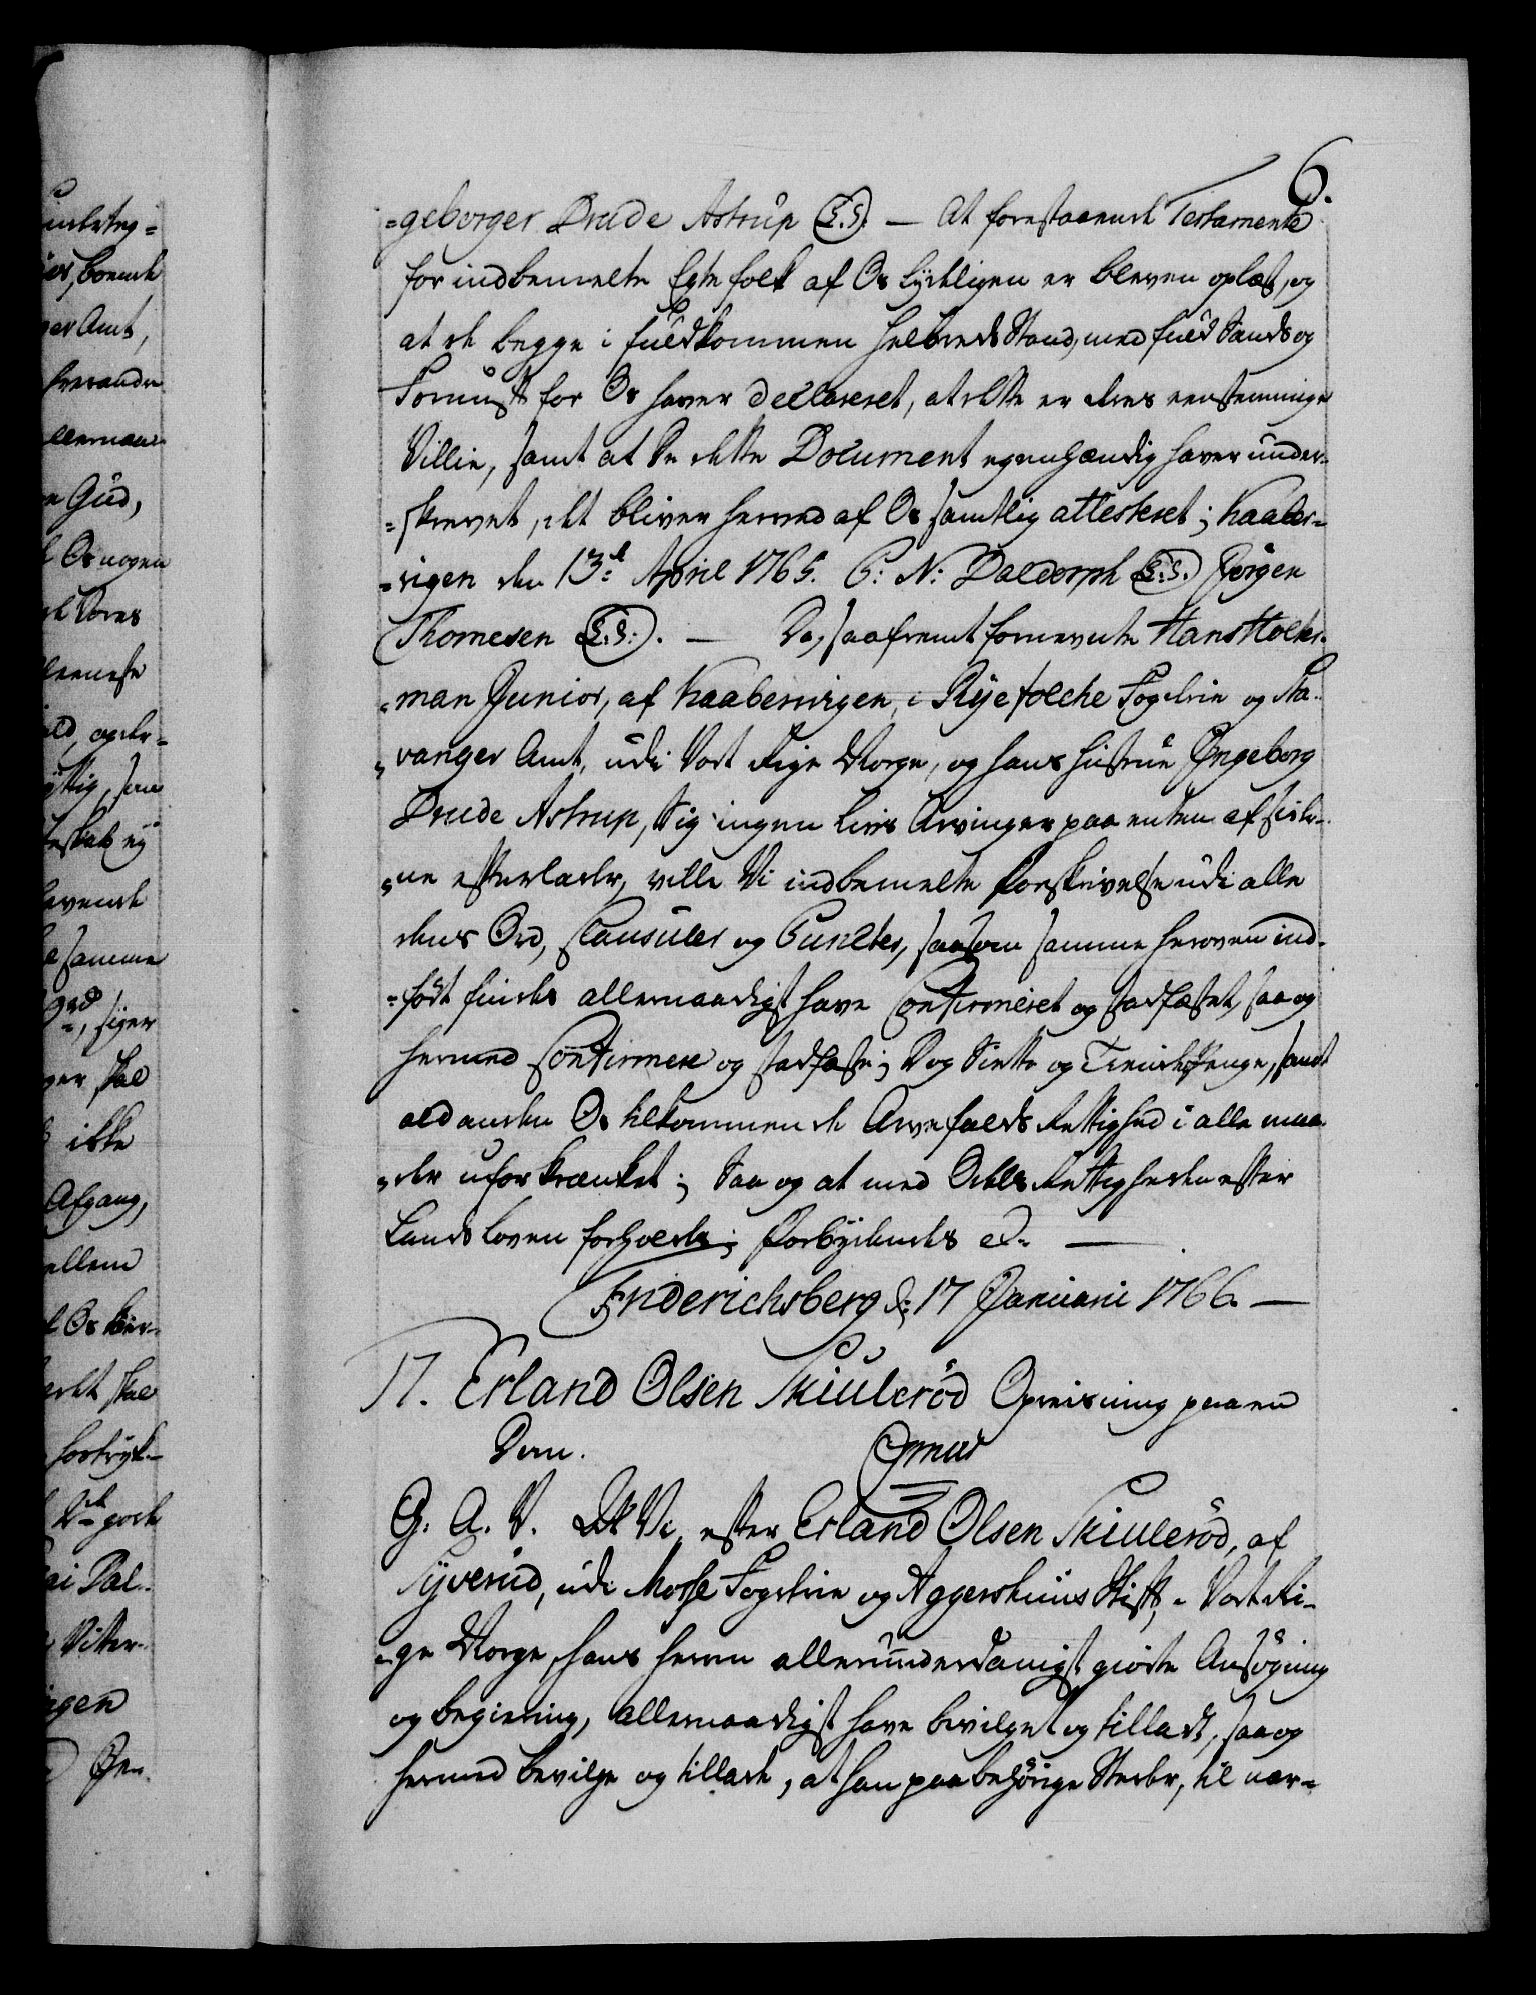 6.
=geborger Drude Astrup (L.S.). — At forestaaende Testamente
for indbemelte Egte folk af Os lydeligen er bleven oplæst, og
at de begge i fuldkommen Helbreds Stand, med fuld Sands og
Fornuft for Os haver declareret, at dette er deres eenstemmige
Villie, samt at De dette Document egenhændig haver under-
=skrevet, det bliver herved af Os samtlig attesteret; Kaaber-
=vigen den 13de April 1765. C: N: Daldorph (L.S.) Jörgen
Thomesen (L.S.). — Da, saafremt fornevnte Hans Holter-
=man Junior, af Kaabervigen, i Ryefylche Fogderie og Sta-
=vanger Amt, udi Vort Rige Norge, og hans Hustrue Ingeborg
Drude Astrup, Sig ingen Livs Arvinger paa enten af Sider-
=ne efterlader, ville Vi indbemelte Forskrivelse udi alle
dens Ord, Clausuler og Puncter, saasom samme heroven ind-
=fört findes allernaadigst have Confirmeret og stadfæstet, saa og
hermed Confirmere og stadfæste; Dog Siette og Tiende Penge, samt
ald anden Os tilkommende Arvefalds Rettighed i alle maa-
=der uforkrænket; Saa og at med Odels Rettigheden efter
Lands loven forholdes; Forbydendes &c. —
Friderichsberg d: 17 Januarii 1766. —
17. Erland Olsen Skiuleröd Opreisning paa en
Dom.
G. A. V. At Vi, efter Erland Olsen Skiuleröd, af
Syverud, udi Mosse Fogderie og Aggershuus Stift, i Vort Ri-
=ge Norge, hans herom allerunderdanigst giorte Ansögning
og begiering, allernaadigst have bevilget og tilladt, saa og
hermed bevilge og tillade, at han paa behörige Steder, til nær-